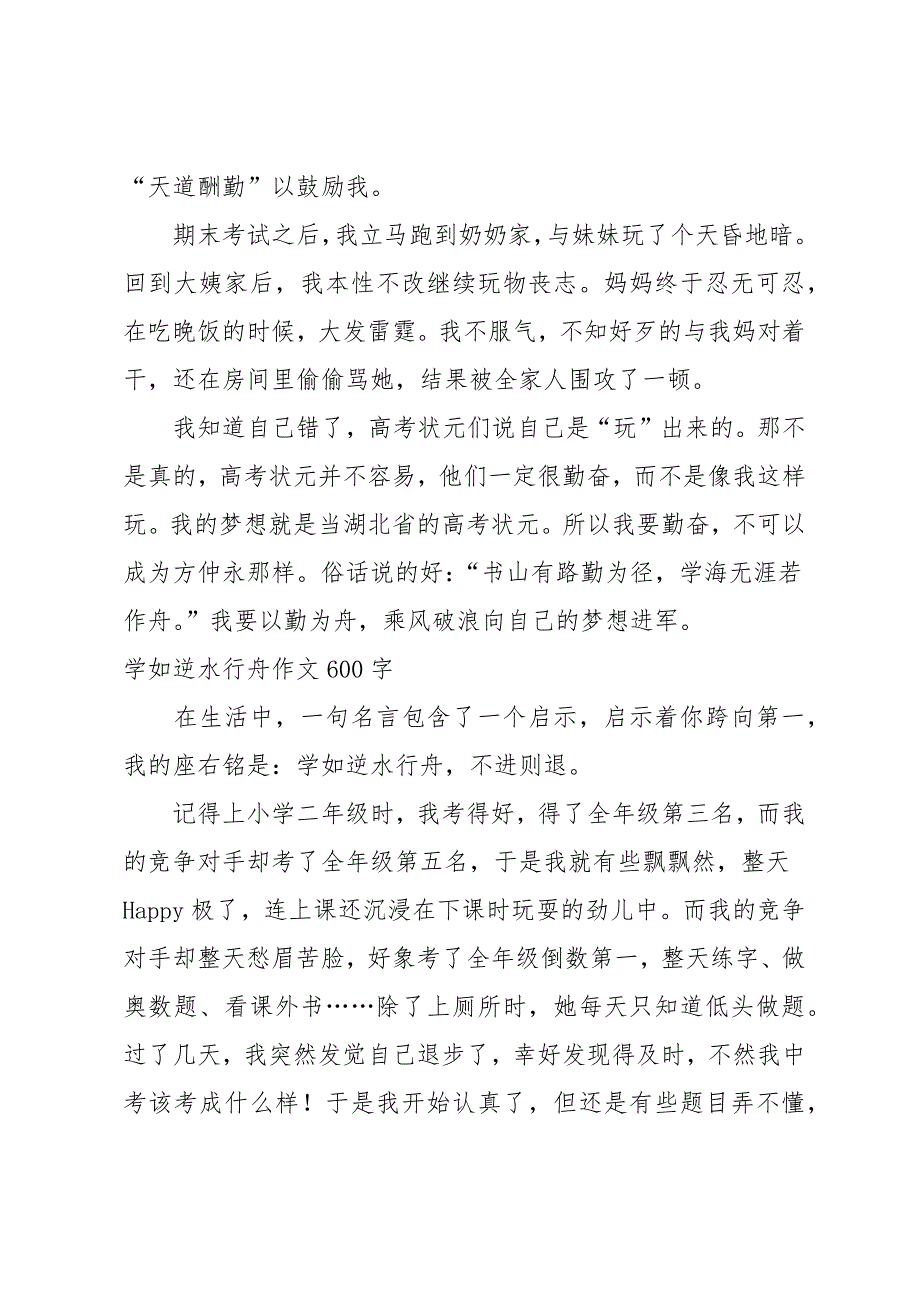 “天道酬勤”以鼓励我。
期末考试之后，我立马跑到奶奶家，与妹妹玩了个天昏地暗。
回到大姨家后，我本性不改继续玩物丧志。妈妈终于忍无可忍，
在吃晚饭的时候，大发雷霆。我不服气，不知好歹的与我妈对着
干，还在房间里偷偷骂她，结果被全家人围攻了一顿。
我知道自己错了，高考状元们说自己是“玩”出来的。那不
是真的，高考状元并不容易，他们一定很勤奋，而不是像我这样
玩。我的梦想就是当湖北省的高考状元。所以我要勤奋，不可以
成为方仲永那样。俗话说的好：“书山有路勤为径，学海无涯若
作舟。”我要以勤为舟，乘风破浪向自己的梦想进军。
学如逆水行舟作文 600 字
在生活中，一句名言包含了一个启示，启示着你跨向第一，
我的座右铭是：学如逆水行舟，不进则退。
记得上小学二年级时，我考得好，得了全年级第三名，而我
的竞争对手却考了全年级第五名，于是我就有些飘飘然，整天
Happy 极了，连上课还沉浸在下课时玩耍的劲儿中。而我的竞争
对手却整天愁眉苦脸，好象考了全年级倒数第一，整天练字、做
奥数题、看课外书……除了上厕所时，她每天只知道低头做题。
过了几天，我突然发觉自己退步了，幸好发现得及时，不然我中
考该考成什么样！于是我开始认真了，但还是有些题目弄不懂，